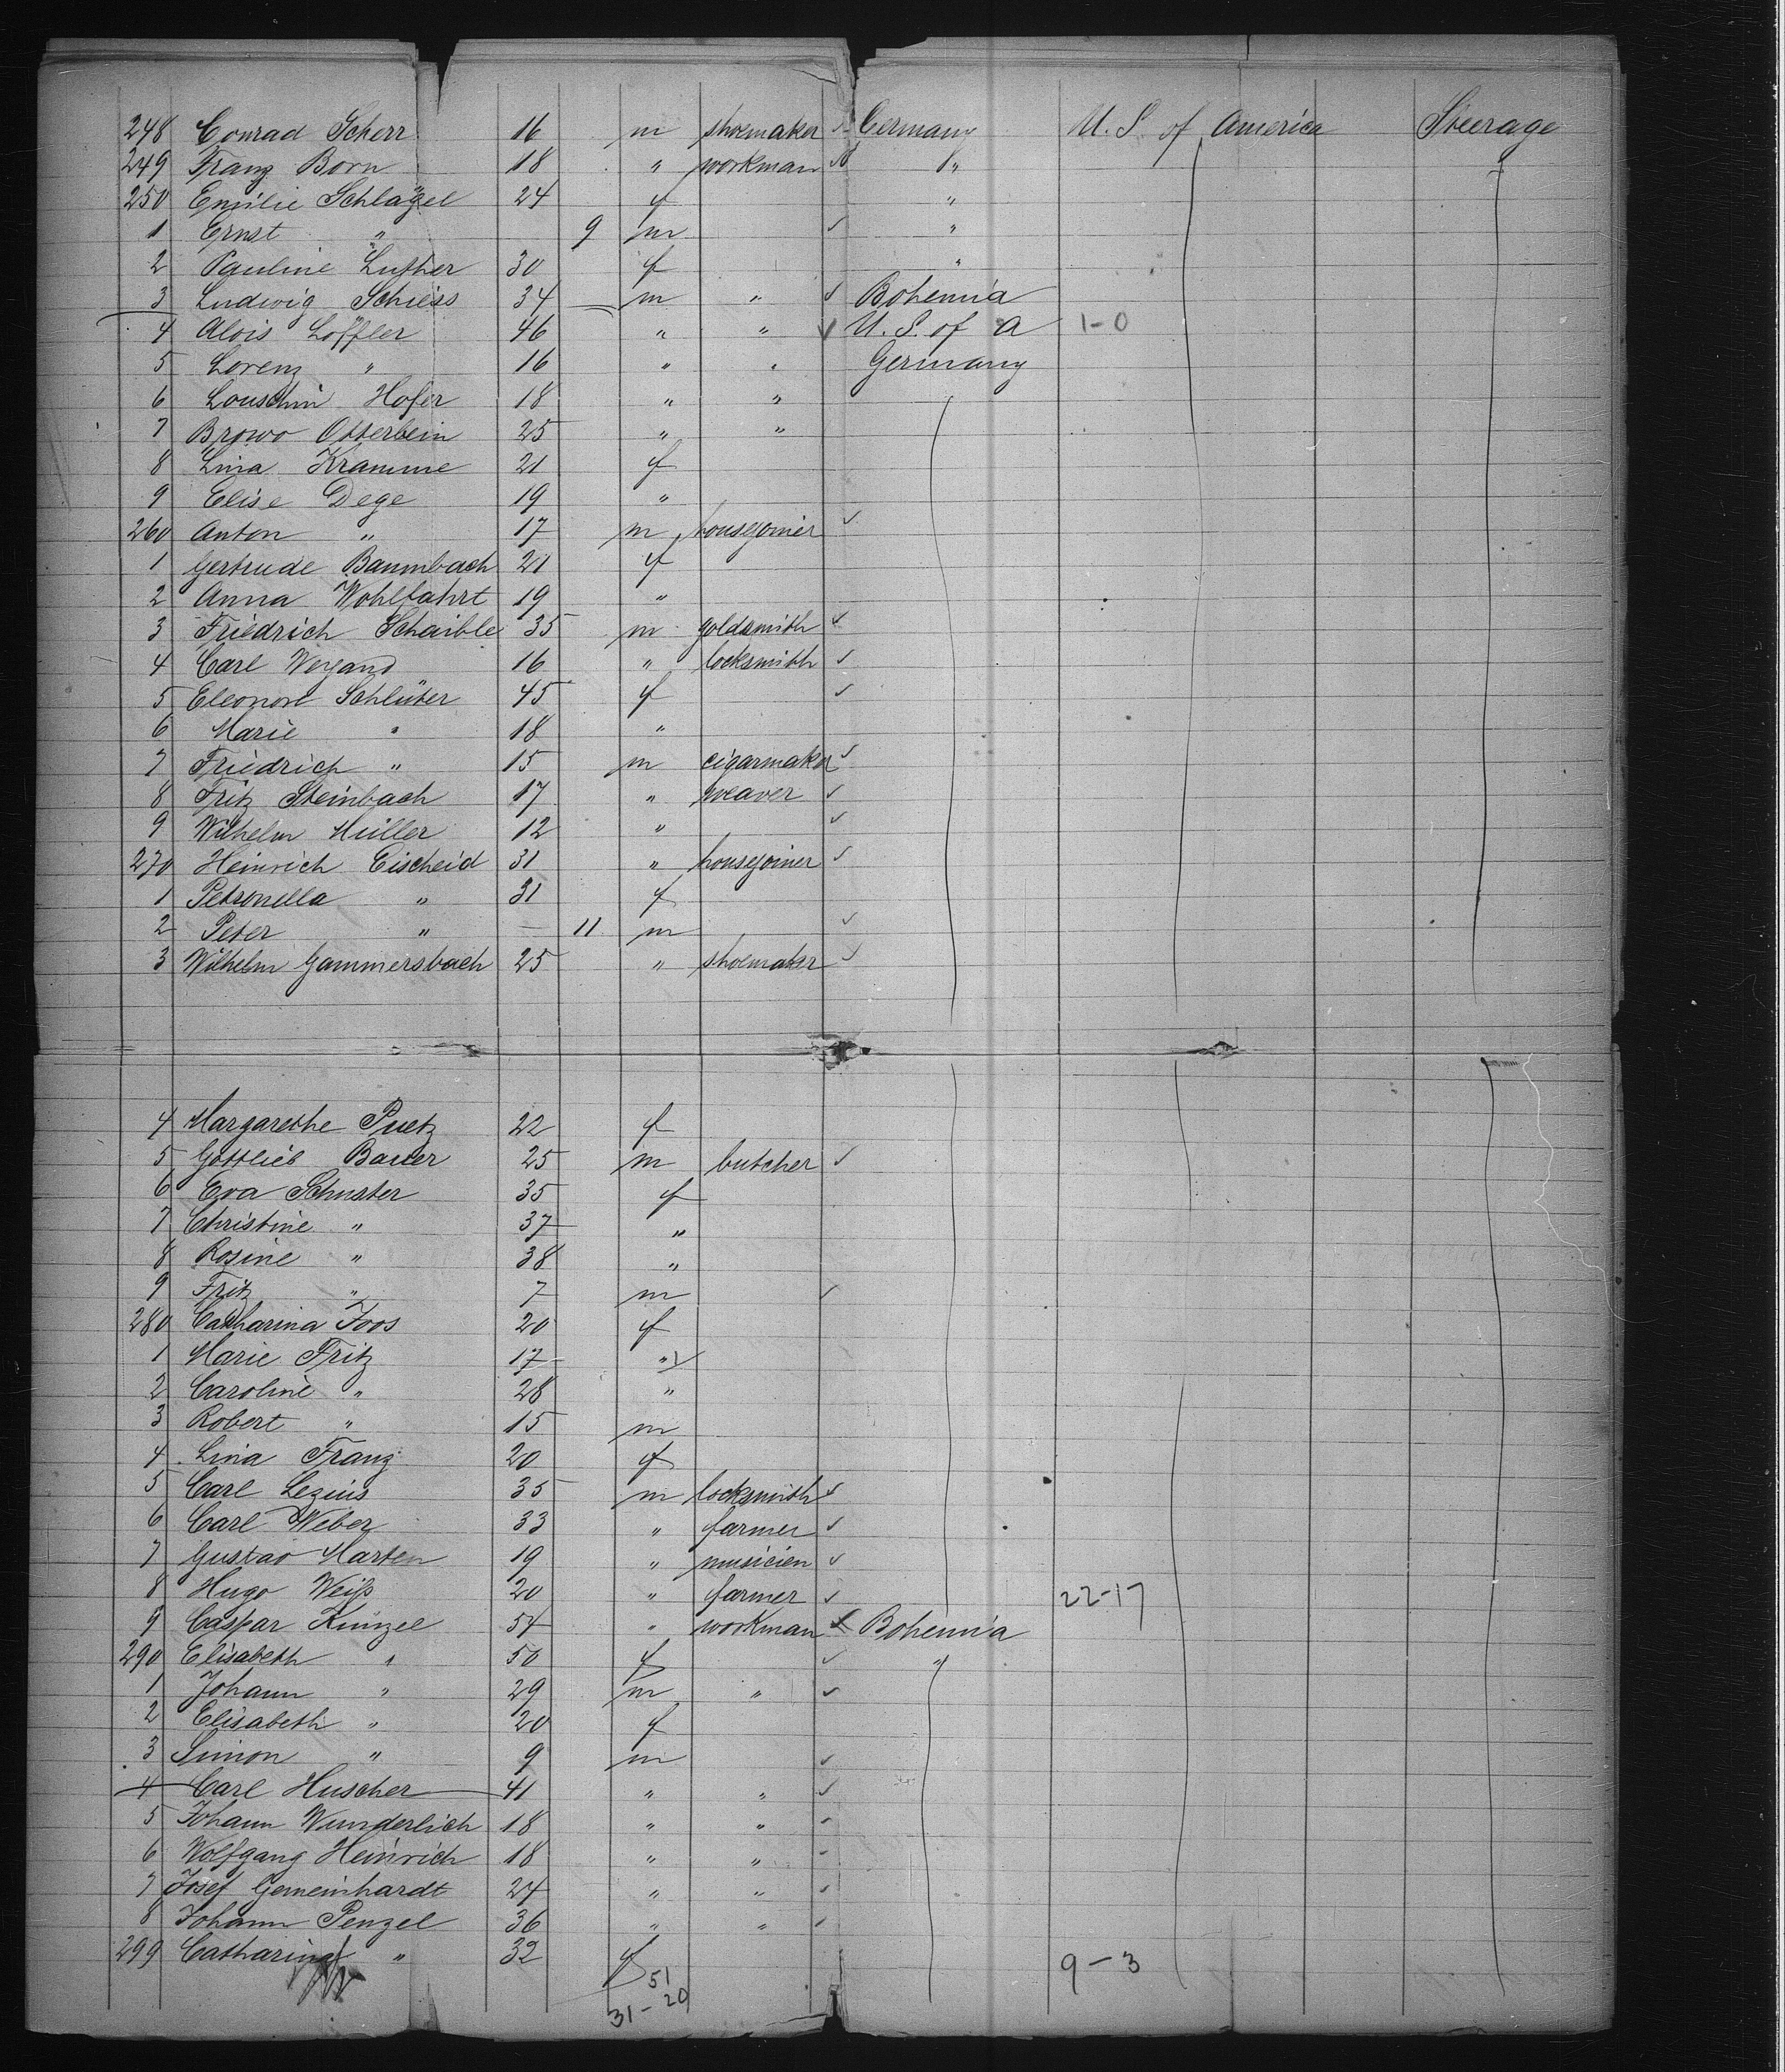 248 Conrad Scherr 16 m shoemaker Germany U. S. of America Steerage
249 Franz Born 18 " workman " "
250 Emilie Schlägel 24 f "
1 Ernst " 9 m "
2 Pauline Luther 30 f "
3 Ludwig Schiess 34 m " Bohemia
4 Alois Löffler 46 " " U. S. of A 1-0
5 Lorenz " 16 " " Germany
6 Louschin Hofer 18 " "
7 Browo Otterbein 25 " "
8 Lina Kramme 21 f
9 Elise Dege 19 "
260 Anton " 17 m housejoiner
1 Gertrude Baumbach 21 f
2 Anna Wohlfahrt 19 "
3 Friedrich Schaible 35 m goldsmith
4 Carl Weyand 16 " locksmith
5 Eleonore Schlüter 45 f
6 Marie " 18 "
7 Friedrich " 15 m cigarmaker
8 Fritz Steinbach 17 " weaver
9 Wilhelm Müller 12 "
270 Heinrich Eischeid 31 " housejoiner
1 Petronella " 31 f
2 Peter " — 11 m
3 Wilhelm Gammersbach 25 " shoemaker
4 Margarethe Puetz 22 f
5 Gottlieb Bauer 25 m butcher
6 Eva Schuster 35 f
7 Christine " 37 "
8 Rosine " 38 "
9 Fritz " 7 m
280 Catharina Joos 20 f
1 Marie Fritz 17 "
2 Caroline " 28 "
3 Robert " 15 m
4 Lina Franz 20 f
5 Carl Lezius 35 m locksmith
6 Carl Weber 33 " farmer
7 Gustav Marten 19 " musicien
8 Hugo Weiß 20 " farmer 22-17
9 Caspar Künzel 54 " workman Bohemia
290 Elisabeth " 50 f "
1 Johann " 29 m "
2 Elisabeth " 20 f
3 Simon " 9 m
4 Carl Huscher 41 " "
5 Johann Wunderlich 18 " "
6 Wolfgang Heinrich 18 " "
7 Josef Gemeinhardt 24 " "
8 Johann Penzel 36 " "
299 Catharina " 32 f 9-3
51
31-20